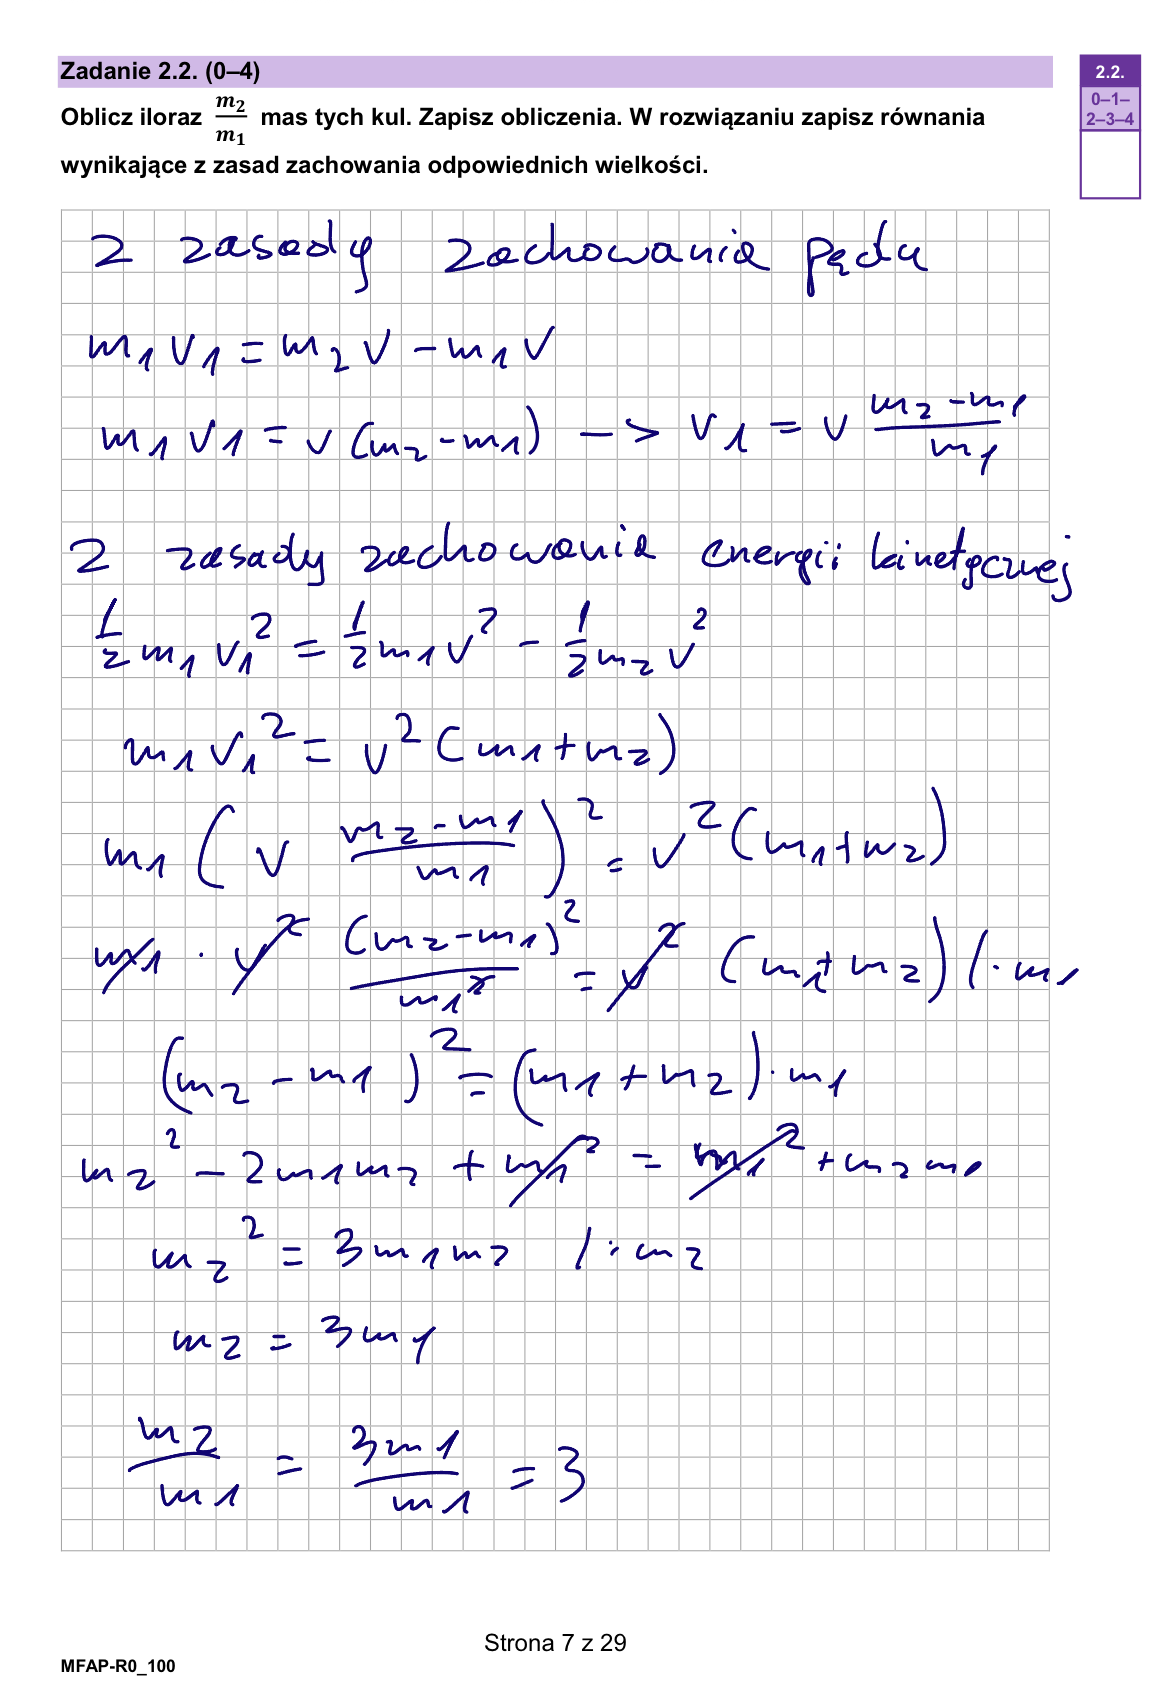 Zadanie 2.2. (0–4)
2.2.
0–1–
2–3–4
Oblicz iloraz m₂/m₁ mas tych kul. Zapisz obliczenia. W rozwiązaniu zapisz równania
wynikające z zasad zachowania odpowiednich wielkości.
Z zasady zachowania pędu
m₁v₁ = m₂v − m₁v
m₁v₁ = v(m₂ − m₁) −> v₁ = v (m₂ − m₁)/m₁
Z zasady zachowania energii kinetycznej
1/2 m₁v₁² = 1/2 m₁v² − 1/2 m₂v²
m₁v₁² = v²(m₁ + m₂)
m₁ (v (m₂ − m₁)/m₁)² = v²(m₁ + m₂)
m₁ · v² (m₂ − m₁)²/m₁² = v² (m₁ + m₂) / · m₁
(m₂ − m₁)² = (m₁ + m₂) · m₁
m₂² − 2m₁m₂ + m₁² = m₁² + m₂m₁
m₂² = 3m₁m₂ / : m₂
m₂ = 3m₁
m₂/m₁ = 3m₁/m₁ = 3
Strona 7 z 29
MFAP-R0_100